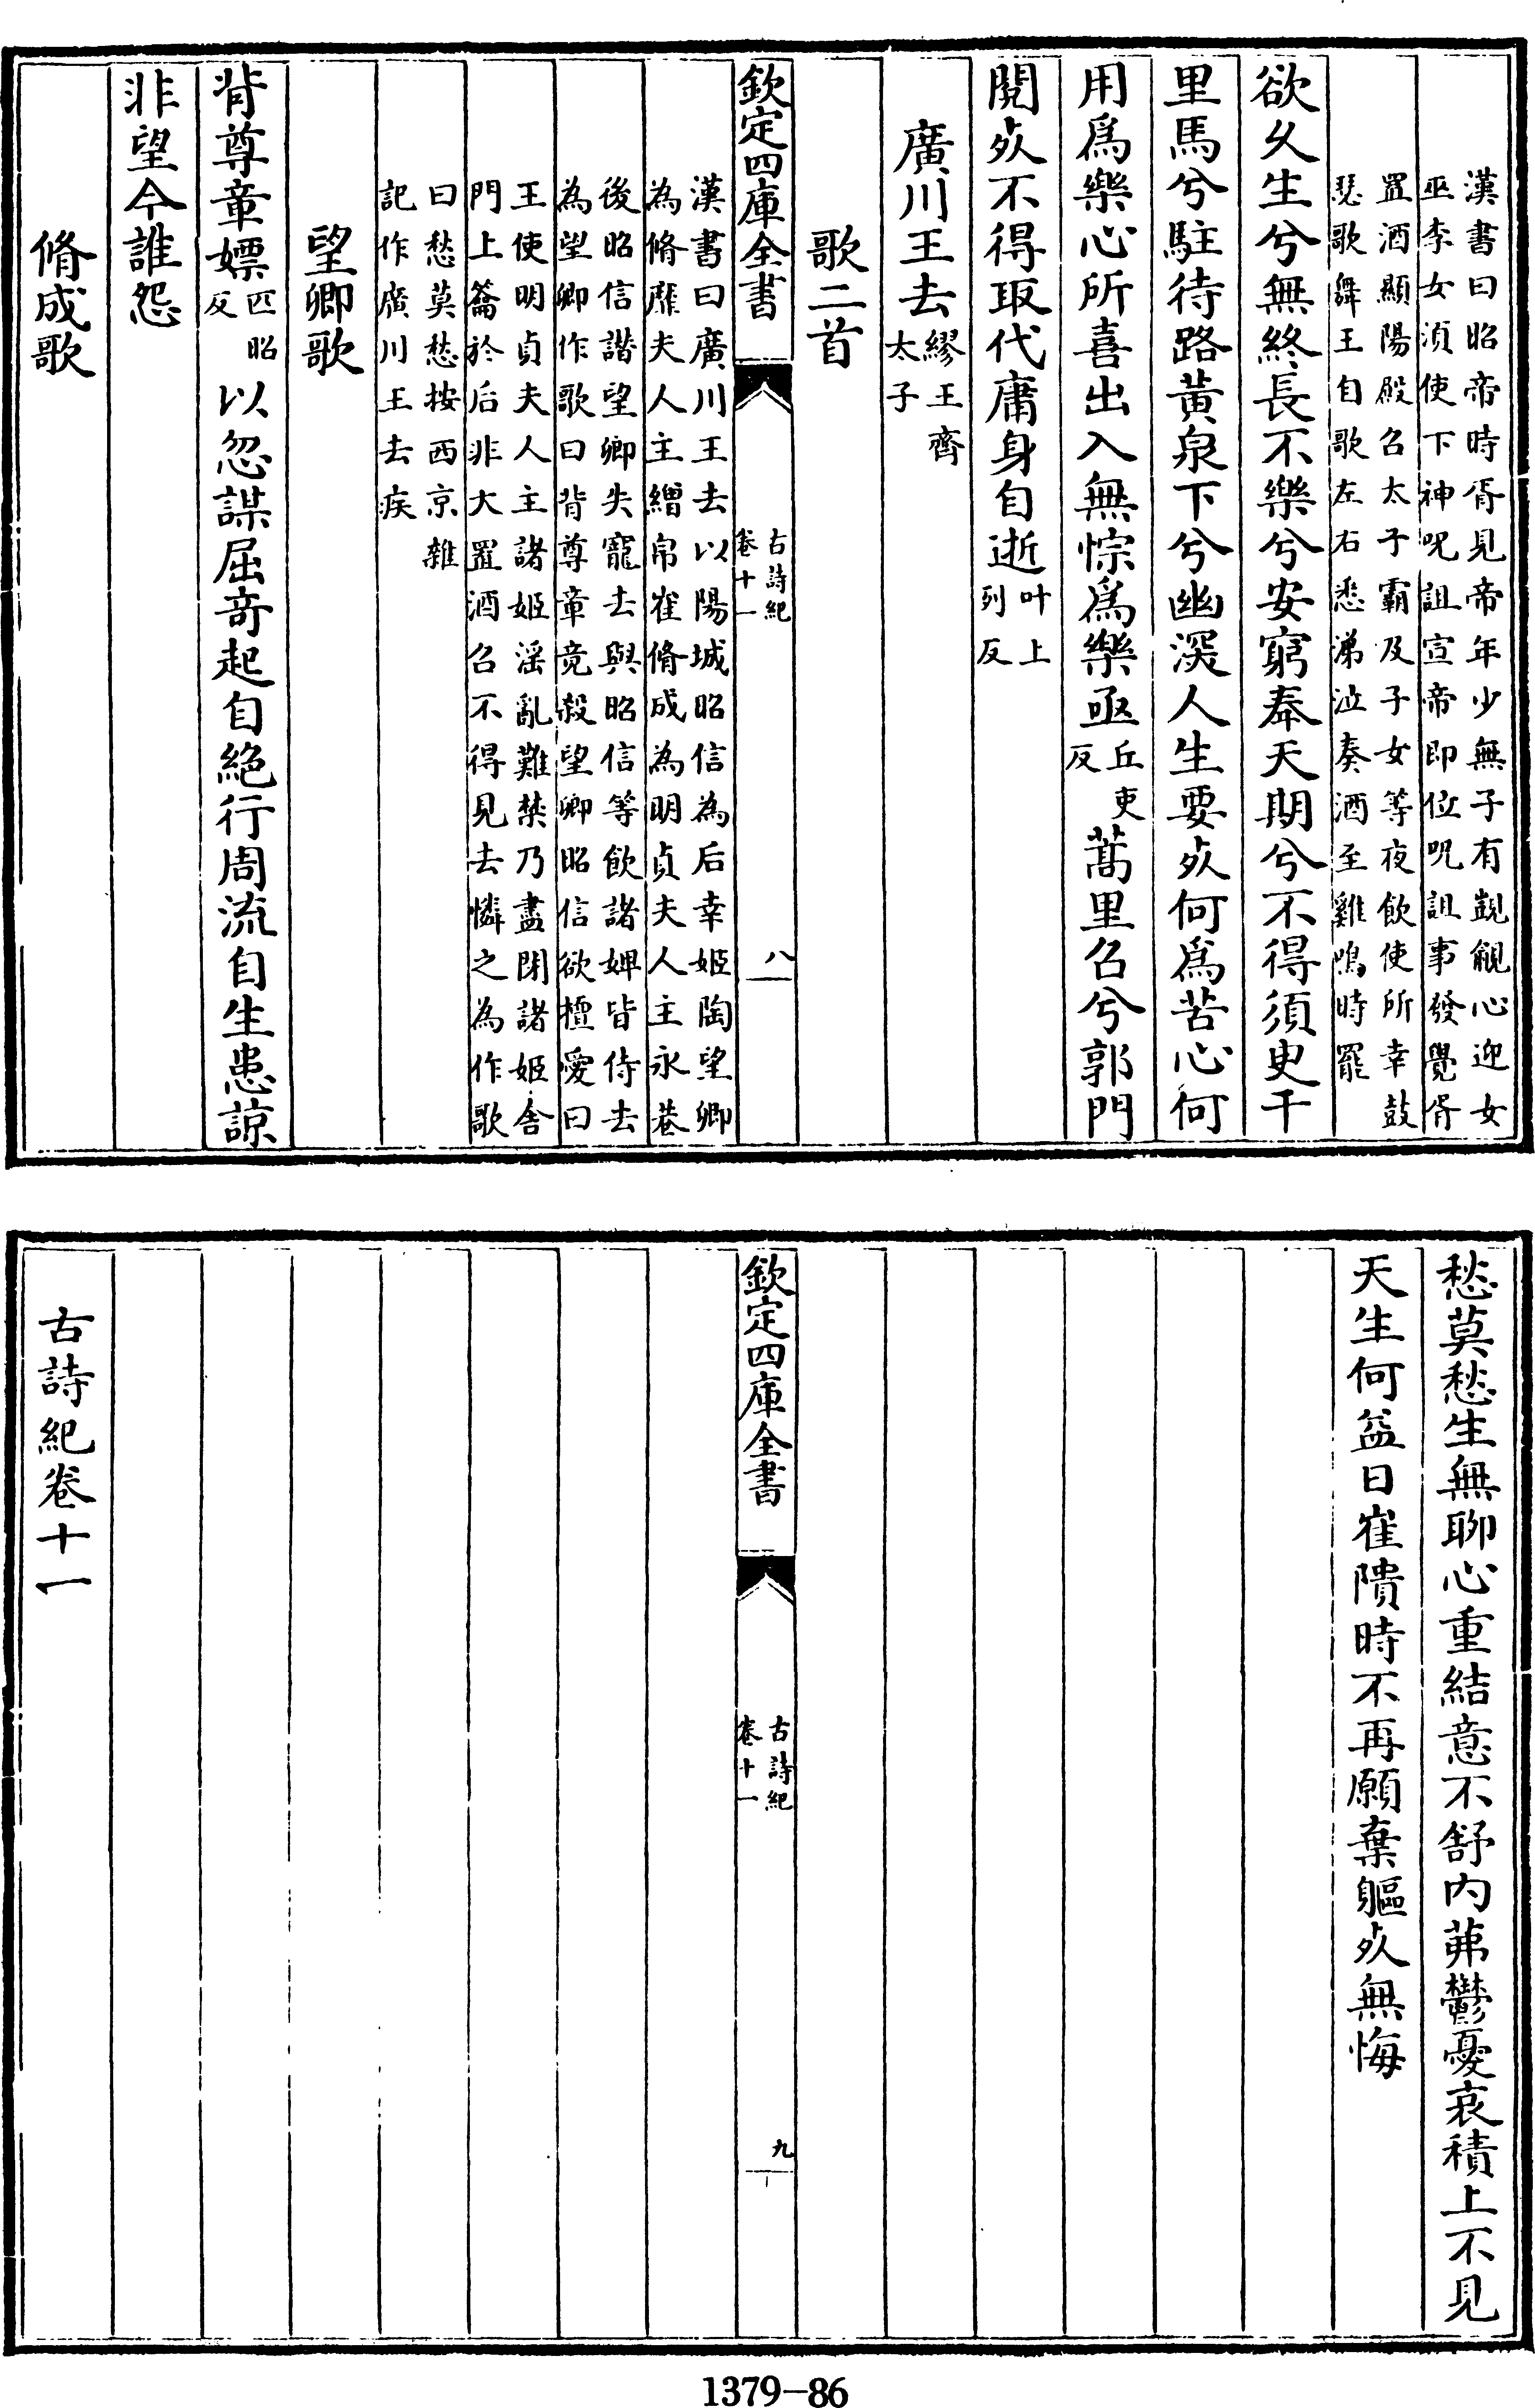 漢書曰昭帝時胥見帝年少無子有覬覦心迎女
巫李女湏使下神呪詛宣帝即位呪詛事發覺胥
置酒顯陽殿召太子霸及子女等夜飲使所幸鼓
瑟歌舞王自歌左右悉涕泣奏酒至雞鳴時罷
欲久生兮無終長不樂兮安窮奉天期兮不得須臾千
里馬兮駐待路黃泉下兮幽深人生要死何爲苦心何
用爲樂心所喜出入無悰爲樂亟丘吏反蒿里召兮郭門
閱死不得取代庸身自逝叶上列反
廣川王去繆王齊太子
歌二首
欽定四庫全書
古詩紀
卷十一
八
漢書曰廣川王去以陽城昭信為后幸姬陶望卿
為脩靡夫人主繒帛崔脩成為明貞夫人主永巷
後昭信譖望卿失寵去與昭信等飲諸婢皆侍去
為望卿作歌曰背尊章竟殺望卿昭信欲擅愛曰
王使明貞夫人主諸姬淫亂難禁乃盡閉諸姬舍
門上籥於后非大置酒召不得見去憐之為作歌
曰愁莫愁按西京雜
記作廣川王去疾
望卿歌
背尊章嫖匹昭反以忽謀屈竒起自絕行周流自生患諒
非望今誰怨
脩成歌
愁莫愁生無聊心重結意不舒内茀鬱憂哀積上不見
天生何益日崔隤時不再願棄軀死無悔
欽定四庫全書
古詩紀
卷十一
九
古詩紀卷十一
1379-86